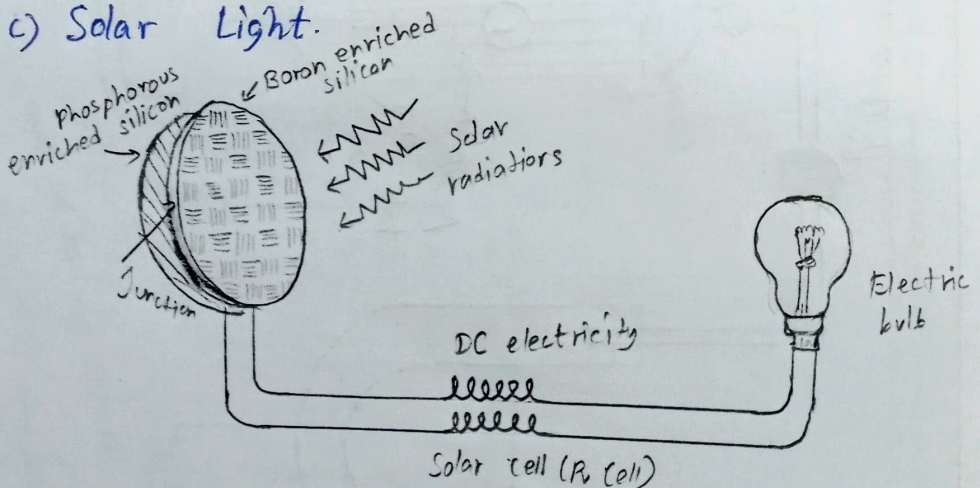 c) Solar Light.
phosphorous
enriched silicon
Boron enriched
silican
Solar
radiatiors
Junction
Electric
bulb
DC electricity
Solar cell (Pv Cell)